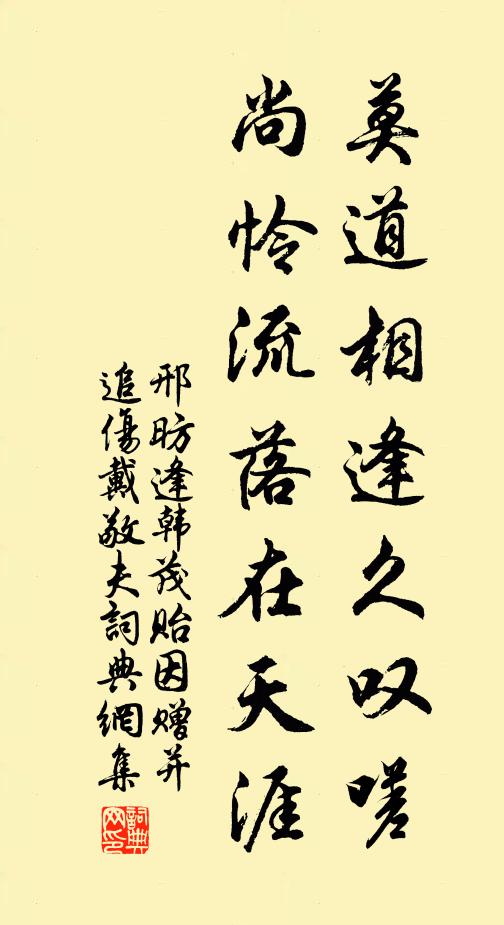 莫道相逢久叹嗟
尚怜流落在天涯
邢昉逢韩茂贻因赠并
追傷戴敬夫詞典網集
詞典网印